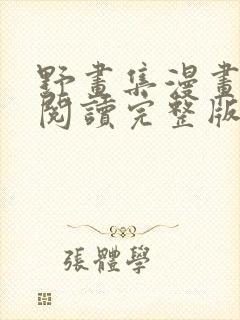 野畫集漫畫
閱讀完整版
張體學